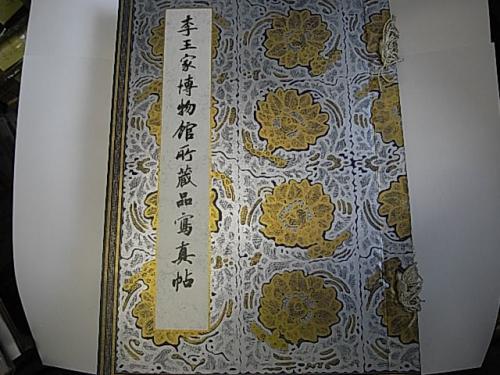 李王家博物館所蔵品寫真帖